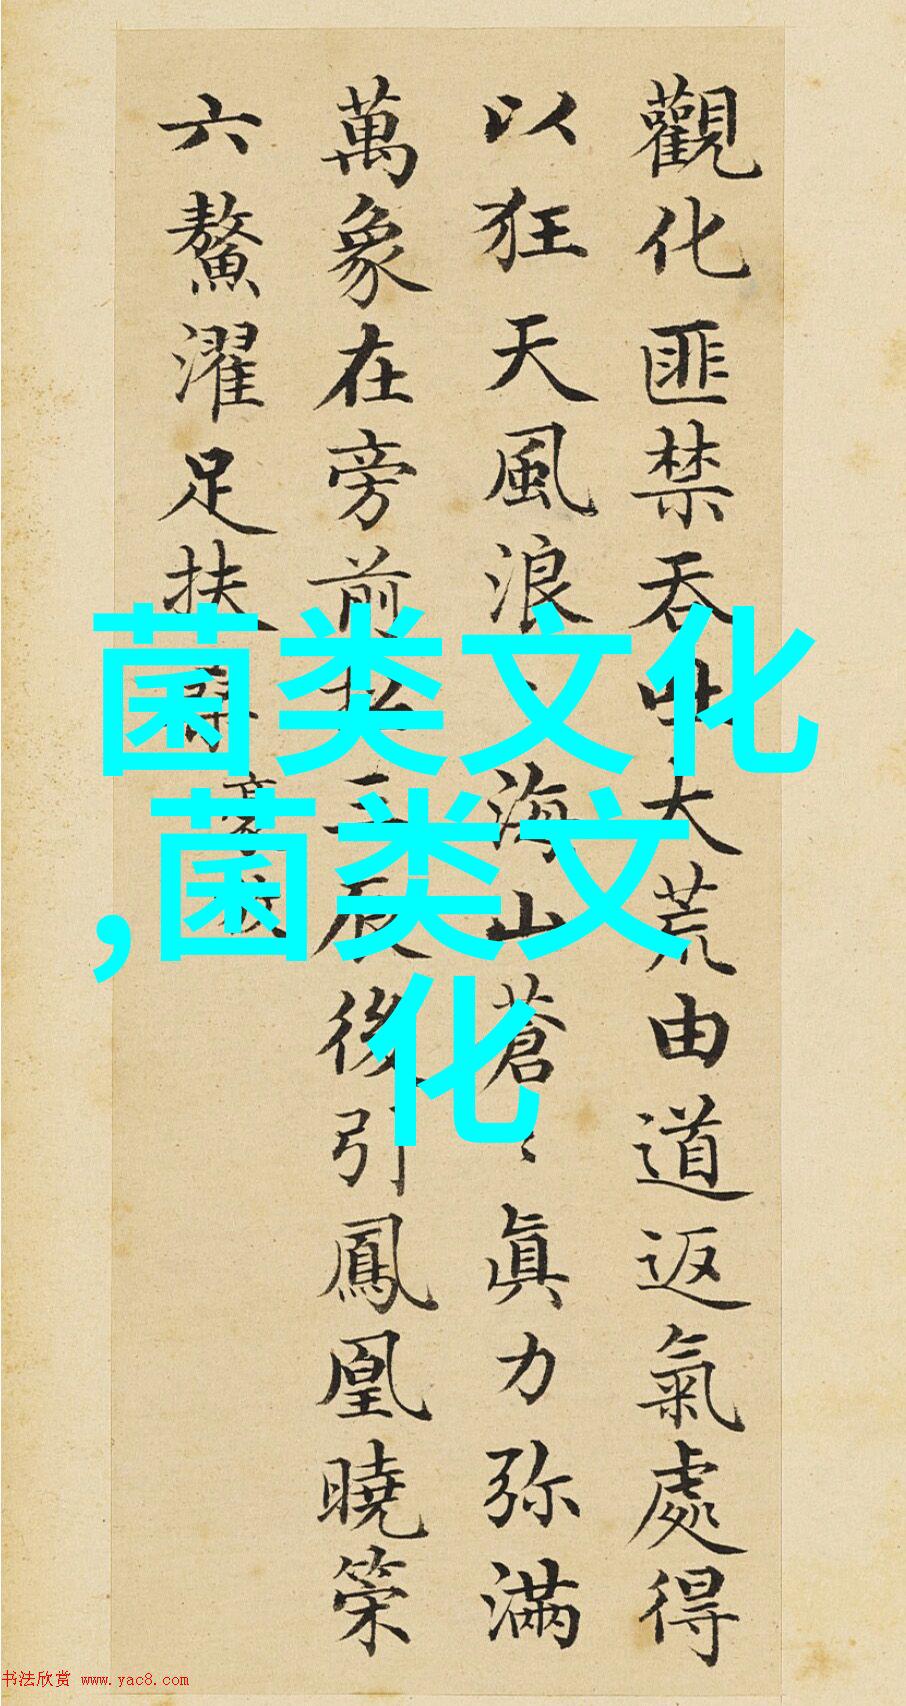 觀化匪禁吞大荒由道返氣處得
以狂天風浪海山蒼〻眞力弥滿
萬象在旁前三辰後引鳳凰曉策
六鰲濯足扶
菌类文化
,菌类文
化
书法欣赏 www.yac8.com